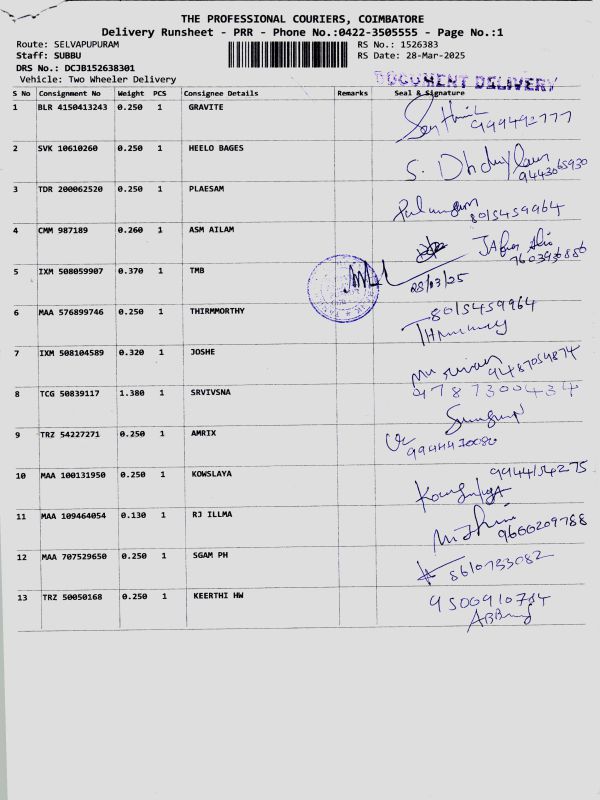 THE PROFESSIONAL COURIERS, COIMBATORE
Delivery Runsheet - PRR - Phone No.:0422-3505555 - Page No.:1
Route: SELVAPUPURAM RS No.: 1526383
Staff: SUBBU RS Date: 28-Mar-2025
DRS No.: DCJB152638301
Vehicle: Two Wheeler Delivery
DOCUMENT DELIVERY
S No Consignment No Weight PCS Consignee Details Remarks Seal & Signature
1 BLR 4150413243 0.250 1 GRAVITE
2 SVK 10610260 0.250 1 HEELO BAGES
9443065930
3 TDR 200062520 0.250 1 PLAESAM
8015459964
4 CMM 987189 0.260 1 ASM AILAM
7603936886
5 IXM 508059907 0.370 1 TMB
28/03/25
6 MAA 576899746 0.250 1 THIRMMORTHY
8015459964
7 IXM 508104589 0.320 1 JOSHE
9487059874
8 TCG 50839117 1.380 1 SRVIVSNA
9787300434
9 TRZ 54227271 0.250 1 AMRIX
10 MAA 100131950 0.250 1 KOWSLAYA
9944154275
11 MAA 109464054 0.130 1 RJ ILLMA
9600209788
12 MAA 707529650 0.250 1 SGAM PH
8610733082
13 TRZ 50050168 0.250 1 KEERTHI HW
9500910784